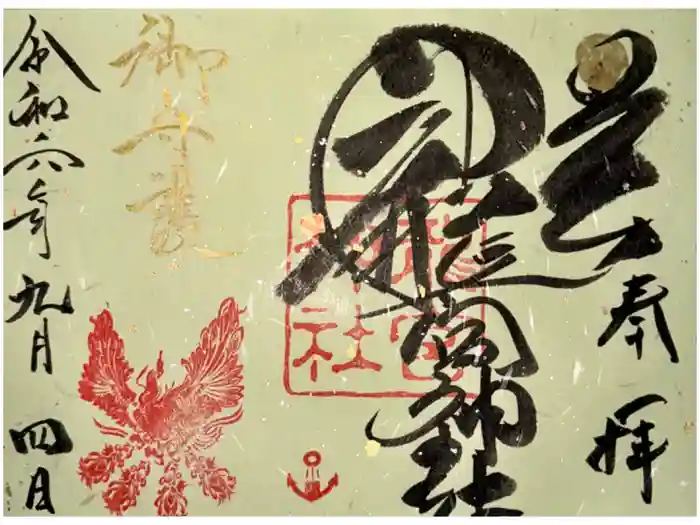 奉拝
龍宮神社
龍宮
神社
御守護
令和六年九月四日